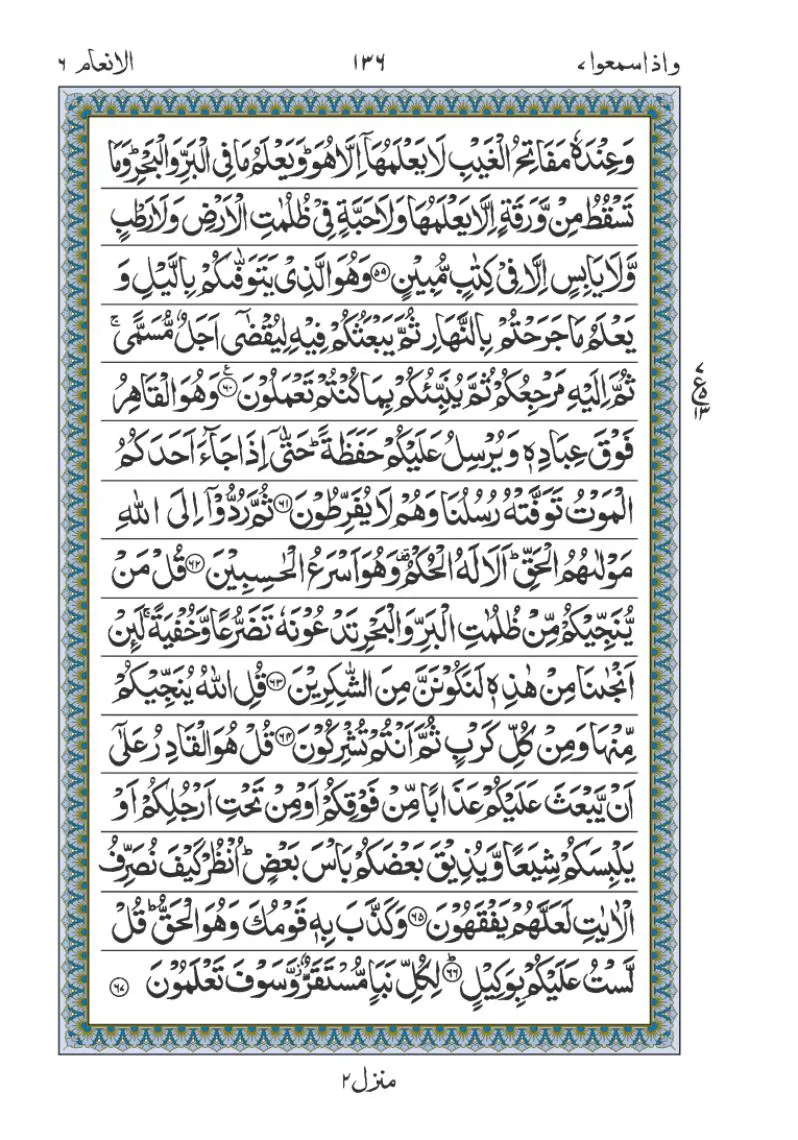 واذاسمعوا ٧ ١٣٦ الانعام ٦
وَعِنْدَهٗ مَفَاتِحُ الْغَيْبِ لَا يَعْلَمُهَاۤ اِلَّا هُوَ ؕ وَيَعْلَمُ مَا فِى الْبَرِّ وَالْبَحْرِ ؕ وَمَا
تَسْقُطُ مِنْ وَّرَقَةٍ اِلَّا يَعْلَمُهَا وَلَا حَبَّةٍ فِىْ ظُلُمٰتِ الْاَرْضِ وَلَا رَطْبٍ
وَّلَا يَابِسٍ اِلَّا فِىْ كِتٰبٍ مُّبِيْنٍ ﴿۵۹﴾ وَهُوَ الَّذِىْ يَتَوَفّٰٮكُمْ بِالَّيْلِ وَ
يَعْلَمُ مَا جَرَحْتُمْ بِالنَّهَارِ ثُمَّ يَبْعَثُكُمْ فِيْهِ لِيُقْضٰٓى اَجَلٌ مُّسَمًّى ۚ
ثُمَّ اِلَيْهِ مَرْجِعُكُمْ ثُمَّ يُنَبِّئُكُمْ بِمَا كُنْتُمْ تَعْمَلُوْنَ ﴿۶۰﴾ وَهُوَ الْقَاهِرُ
ع ٧ ۵ ١٣
فَوْقَ عِبَادِهٖ وَيُرْسِلُ عَلَيْكُمْ حَفَظَةً ؕ حَتّٰٓى اِذَا جَآءَ اَحَدَكُمُ
الْمَوْتُ تَوَفَّتْهُ رُسُلُنَا وَهُمْ لَا يُفَرِّطُوْنَ ﴿۶۱﴾ ثُمَّ رُدُّوْۤا اِلَى اللّٰهِ
مَوْلٰٮهُمُ الْحَقِّ ؕ اَلَا لَهُ الْحُكْمُ وَهُوَ اَسْرَعُ الْحٰسِبِيْنَ ﴿۶۲﴾ قُلْ مَنْ
يُّنَجِّيْكُمْ مِّنْ ظُلُمٰتِ الْبَرِّ وَالْبَحْرِ تَدْعُوْنَهٗ تَضَرُّعًا وَّخُفْيَةً ۚ لَئِنْ
اَنْجٰٮنَا مِنْ هٰذِهٖ لَنَكُوْنَنَّ مِنَ الشّٰكِرِيْنَ ﴿۶۳﴾ قُلِ اللّٰهُ يُنَجِّيْكُمْ
مِّنْهَا وَمِنْ كُلِّ كَرْبٍ ثُمَّ اَنْتُمْ تُشْرِكُوْنَ ﴿۶۴﴾ قُلْ هُوَ الْقَادِرُ عَلٰٓى
اَنْ يَّبْعَثَ عَلَيْكُمْ عَذَابًا مِّنْ فَوْقِكُمْ اَوْ مِنْ تَحْتِ اَرْجُلِكُمْ اَوْ
يَلْبِسَكُمْ شِيَعًا وَّيُذِيْقَ بَعْضَكُمْ بَاْسَ بَعْضٍ ؕ اُنْظُرْ كَيْفَ نُصَرِّفُ
الْاٰيٰتِ لَعَلَّهُمْ يَفْقَهُوْنَ ﴿۶۵﴾ وَكَذَّبَ بِهٖ قَوْمُكَ وَهُوَ الْحَقُّ ؕ قُلْ
لَّسْتُ عَلَيْكُمْ بِوَكِيْلٍ ﴿ؕ۶۶﴾ لِكُلِّ نَبَاٍ مُّسْتَقَرٌّ وَّسَوْفَ تَعْلَمُوْنَ ﴿۶۷﴾
منزل ٢